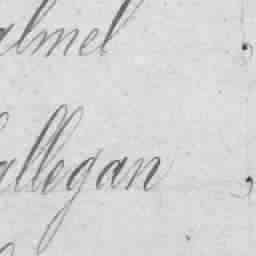 almel
allegan